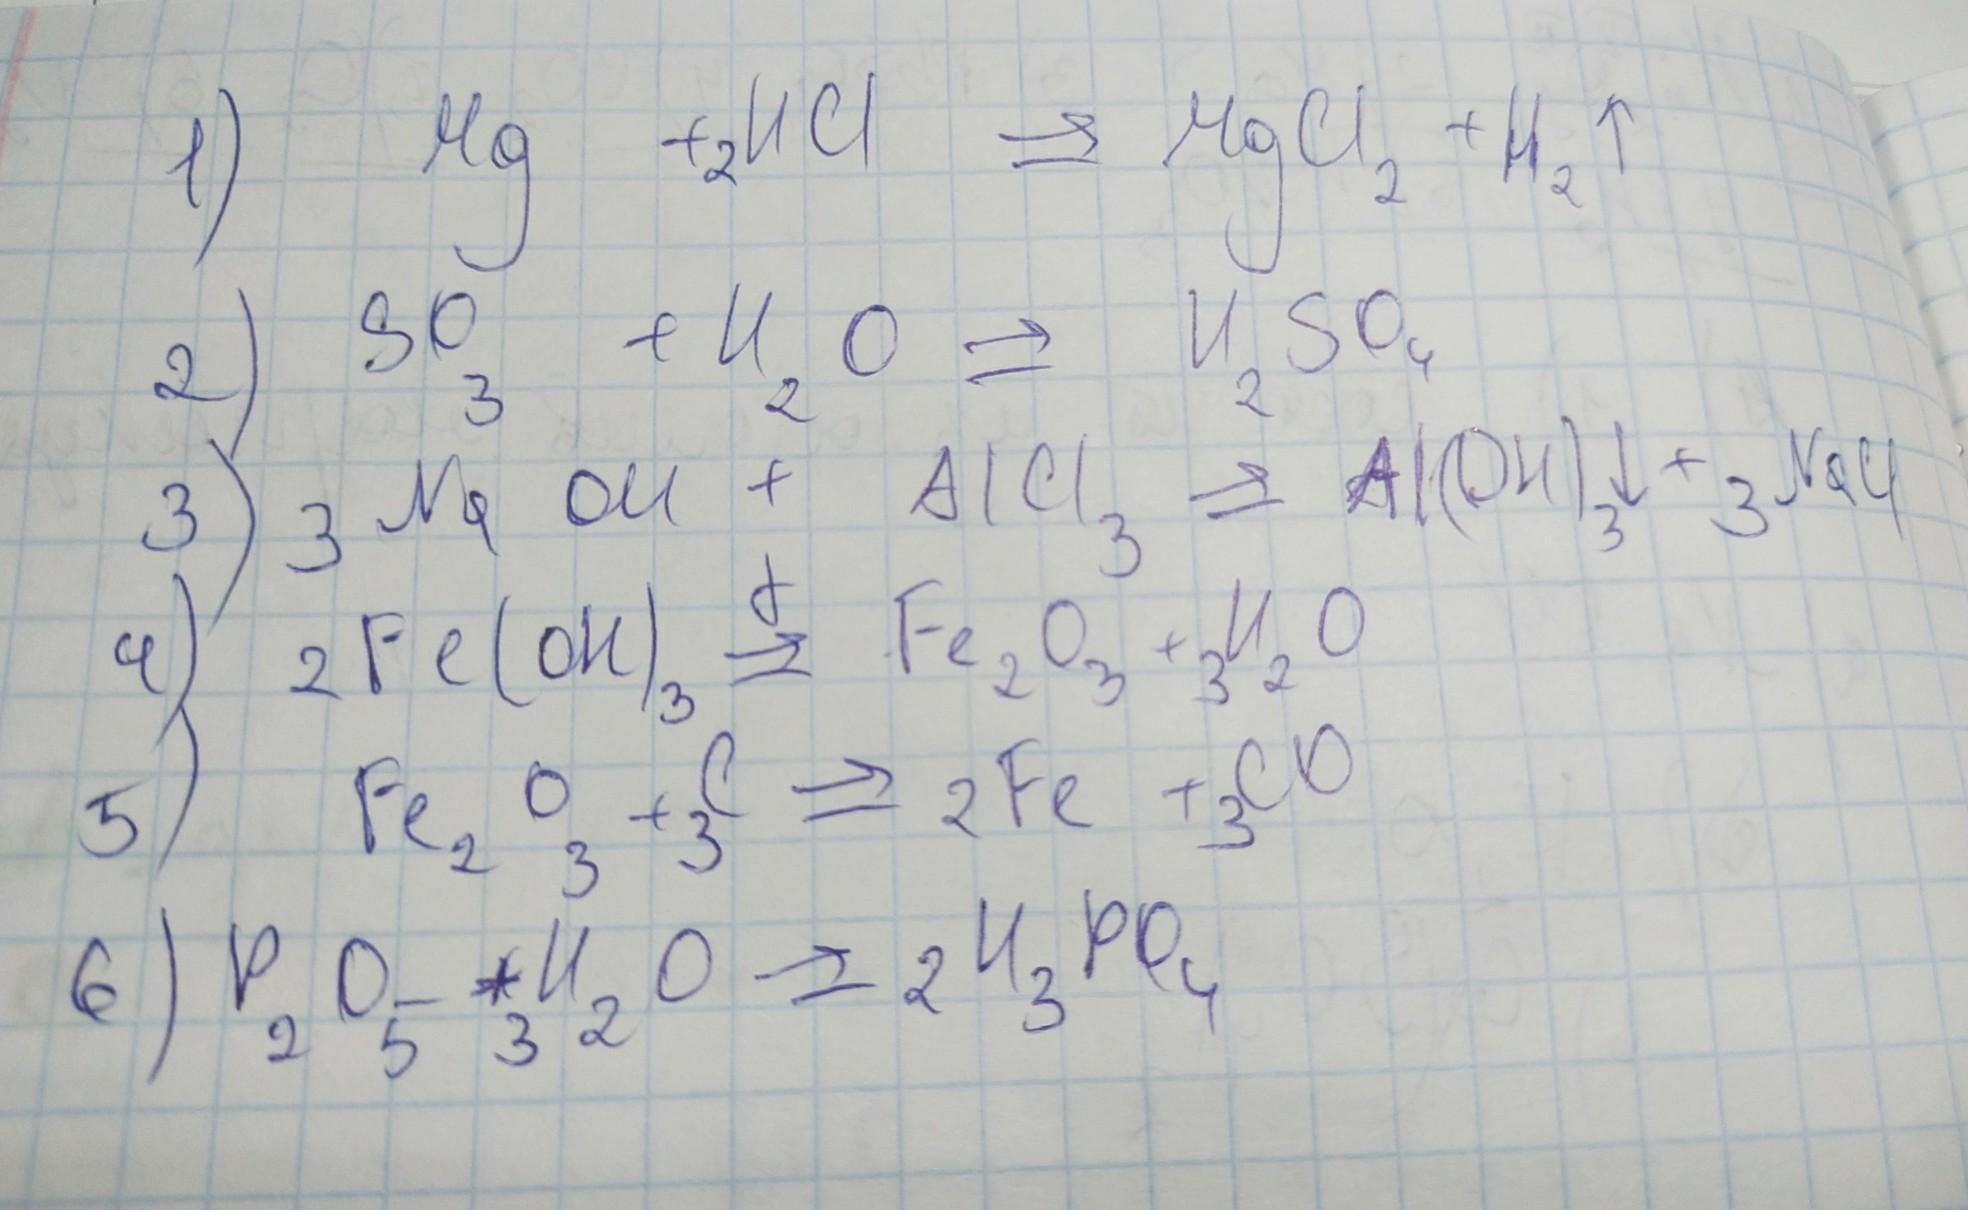 1) Mg +2HCl ⇒ MgCl₂ + H₂↑
2) SO₃ + H₂O ⇒ H₂SO₄
3) 3NaOH + AlCl₃ ⇒ Al(OH)₃↓ + 3NaCl
4) 2Fe(OH)₃ t⇒ Fe₂O₃ + 3H₂O
5) Fe₂O₃ + 3C ⇒ 2Fe + 3CO
6) P₂O₅ + 3H₂O ⇒ 2H₃PO₄